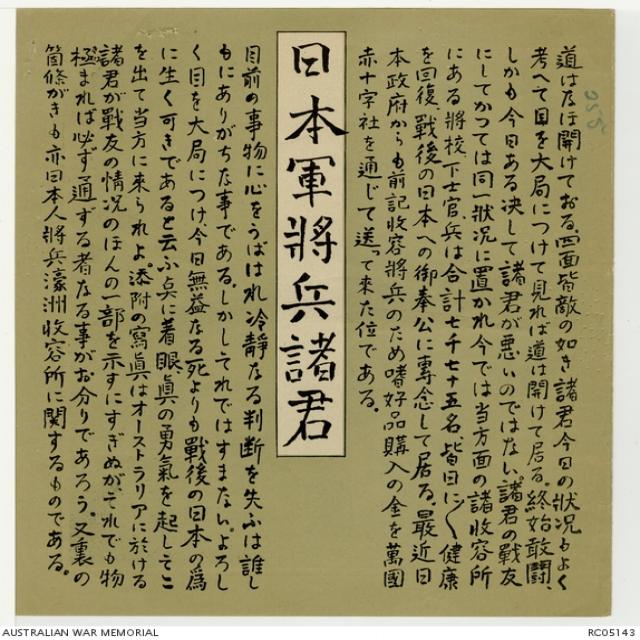 道はなほ開けておる。四面皆敵の如き諸君今日の狀況もよく
考へて目を大局につけて見れば道は開けて居る。終始敢鬪、
しかも今日ある決して諸君が悪いのではない。諸君の戰友
にしてかつては同一狀況に置かれ今では当方面の諸收容所
にある將校下士官兵は合計七千七十五名皆日に〱健康
を回復、戰後の日本への御奉公に專念して居る。最近日
本政府からも前記收容將兵のため嗜好品購入の金を萬國
赤十字社を通じて送って來た位である。
日本軍將兵諸君
目前の事物に心をうばはれ冷靜なる判断を失ふは誰し
もにありがちな事である。しかしそれではすまない。よろし
く目を大局につけ今日無益なる死よりも戰後の日本の爲
に生く可きであると云ふ点に着眼、眞の勇氣を起してこゝ
を出て当方に来られよ。添附の寫眞はオーストラリアに於ける
諸君が戰友の情况のほんの一部を示すにすぎぬが、それでも物
極まれば必ず通ずる者なる事がお分りであろう。又裏の
箇條がきも亦日本人將兵濠洲收容所に関するものである。
AUSTRALIAN WAR MEMORIAL
RC05143